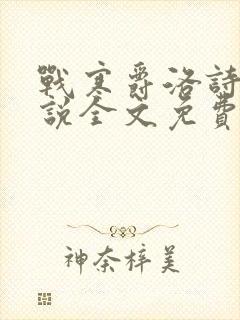 戰寒爵洛詩
說全文免費
神奈梓美